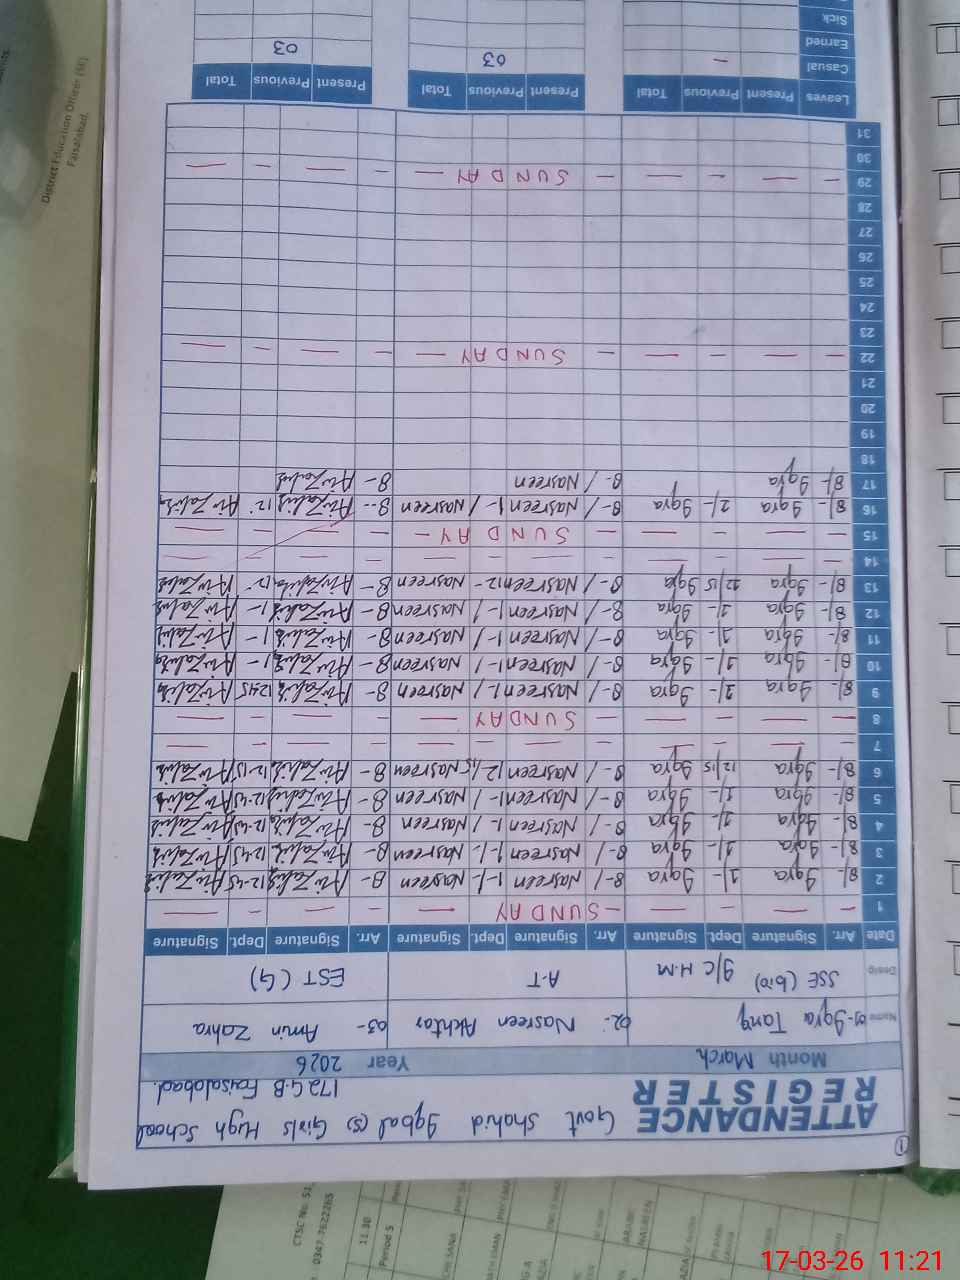 Govt Shahid Iqbal (S) Girls High School
ATTENDANCE REGISTER
172 G.B Faisalabad.
Month March Year 2026
Name 01- Iqra Tariq 02- Nasreen Akhtar 03- Amin Zahra
Desig SSE (bio) I/C H.M A-T EST (G)
Date Arr. Signature Dept. Signature Arr. Signature Dept. Signature Arr. Signature Dept. Signature
1 — — — — — SUNDAY — — — — —
2 8/- Iqra 1/- Iqra 8-/ Nasreen 1-/- Nasreen 8- 12-45
3 8/- Iqra 1/- Iqra 8-/ Nasreen 1-/- Nasreen 8- 12-45
4 8/- Iqra 1/- Iqra 8-/ Nasreen 1-/ Nasreen 8- 12-45
5 8/- Iqra 1/- Iqra 8-/ Nasreen 1-/ Nasreen 8- 12-45
6 8/- Iqra 12/15 Iqra 8-/ Nasreen 12/15 Nasreen 8- 12-15
7 — — — — — — — — — —
8 — — — — — SUNDAY — — — — —
9 8/- Iqra 1/- Iqra 8-/ Nasreen 1-/ Nasreen 8- 12-45
10 8/- Iqra 1/- Iqra 8-/ Nasreen 1-/ Nasreen 8- 1-
11 8/- Iqra 1/- Iqra 8-/ Nasreen 1-/ Nasreen 8- 1-
12 8/- Iqra 1/- Iqra 8-/ Nasreen 1-/ Nasreen 8- 1-
13 8/- Iqra 12/15 Iqra 8-/ Nasreen 12- Nasreen 8- 12-
14 — — — — — — — —
15 — — — — — SUNDAY — — — — —
16 8/- Iqra 1/- Iqra 8-/ Nasreen 1-/ Nasreen 8- 12
17 8/- Iqra 8-/ Nasreen 8-
18
19
20
21
22 — — — — — SUNDAY — — — — —
23
24
25
26
27
28
29 — — — — — SUNDAY — — — — —
30
31
Leaves Present Previous Total Present Previous Total Present Previous Total
Casual — 03 03
Earned
Sick
District Education Officer (SE)
Faisalabad.
CTSC No: 51,
0347-7622265
11.30
Period 5
17-03-26 11:21